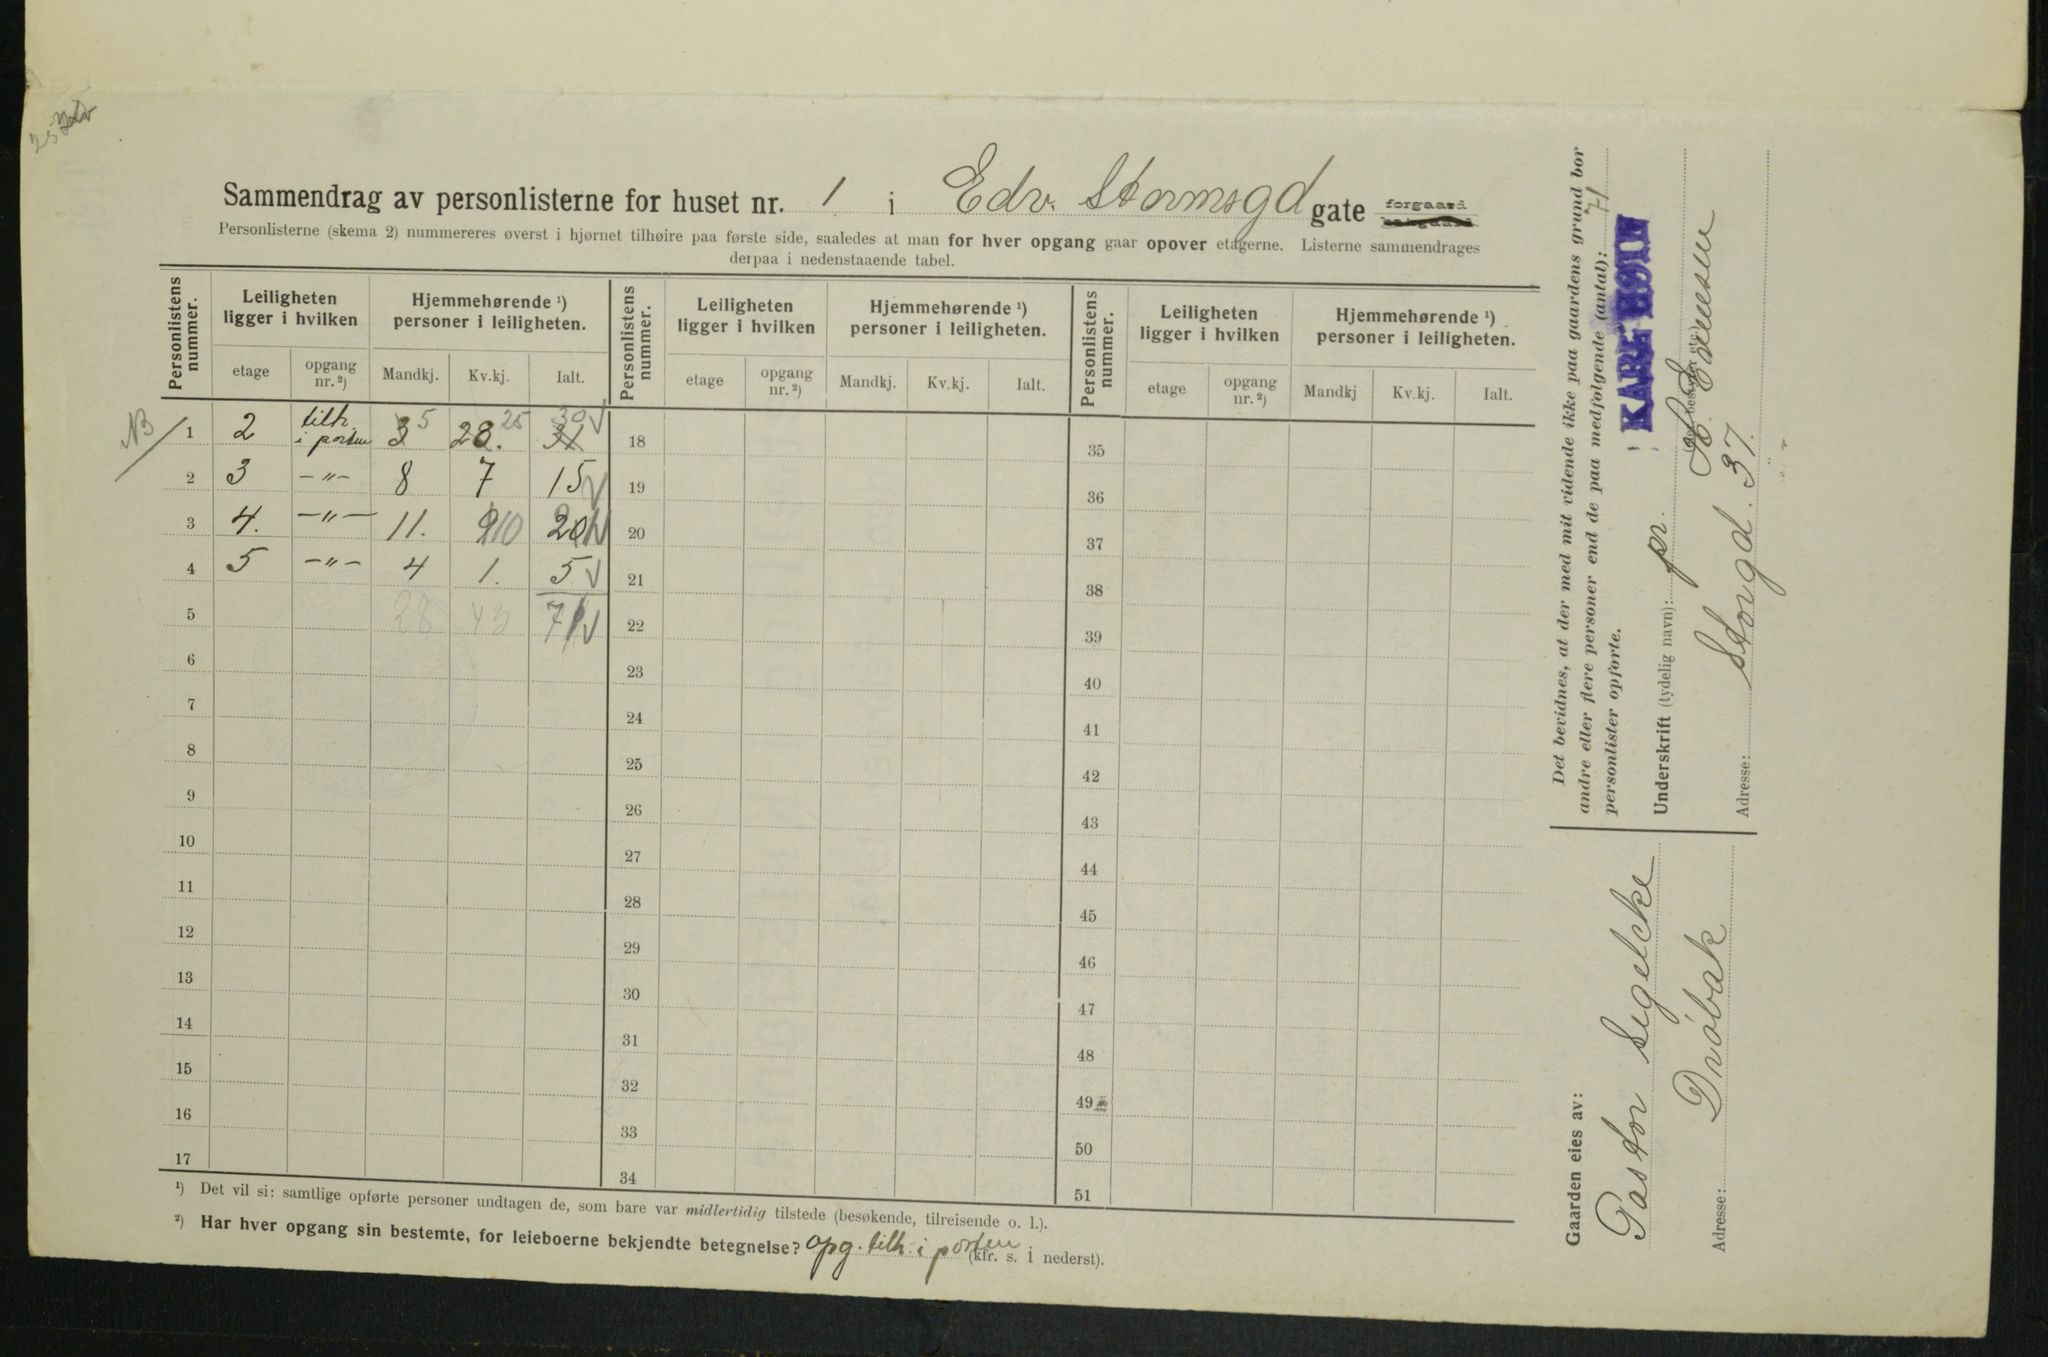 Sammendrag av personlisterne for huset nr. 1 i Edv. Stormsgd gate forgaard bakgaard
Personlisterne (skema 2) nummereres øverst i hjørnet tilhøire paa første side, saaledes at man for hver opgang gaar opover etagerne. Listerne sammendrages
derpaa i nedenstaaende tabel.
Personlistens nummer. Leiligheten ligger i hvilken Hjemmehørende ¹) personer i leiligheten. Personlistens nummer. Leiligheten ligger i hvilken Hjemmehørende ¹) personer i leiligheten. Personlistens nummer. Leiligheten ligger i hvilken Hjemmehørende ¹) personer i leiligheten.
etage opgang nr. ²) Mandkj. Kv.kj. Ialt. etage opgang nr. ²) Mandkj. Kv.kj. Ialt. etage opgang nr. ²) Mandkj Kv.kj. Ialt.
NB 1 2 tilh. i porten 3 5 28. 25 31 30 18 35
2 3 -"- 8 7 15 19 36
3 4. -"- 11. 9 10 20 20 37
4 5 -"- 4 1. 5 21 38
5 28 43 71 22 39
6 23 40
7 24 41
8 25 42
9 26 43
10 27 44
11 28 45
12 29 46
13 30 47
14 31 48
15 32 49
16 33 50
17 34 51
¹) Det vil si: samtlige opførte personer undtagen de, som bare var midlertidig tilstede (besøkende, tilreisende o. l.).
²) Har hver opgang sin bestemte, for leieboerne bekjendte betegnelse? opg. tilh. i porten (kfr. s. 1 nederst).
Det bevidnes, at der med mit vidende ikke paa gaardens grund bor
andre eller flere personer end de paa medfølgende (antal): 71
personlister opførte.
Underskrift (tydelig navn): pr.
Adresse: Storgd. 37.
Gaarden eies av:
Pastor Segelcke
Adresse: Drøbak